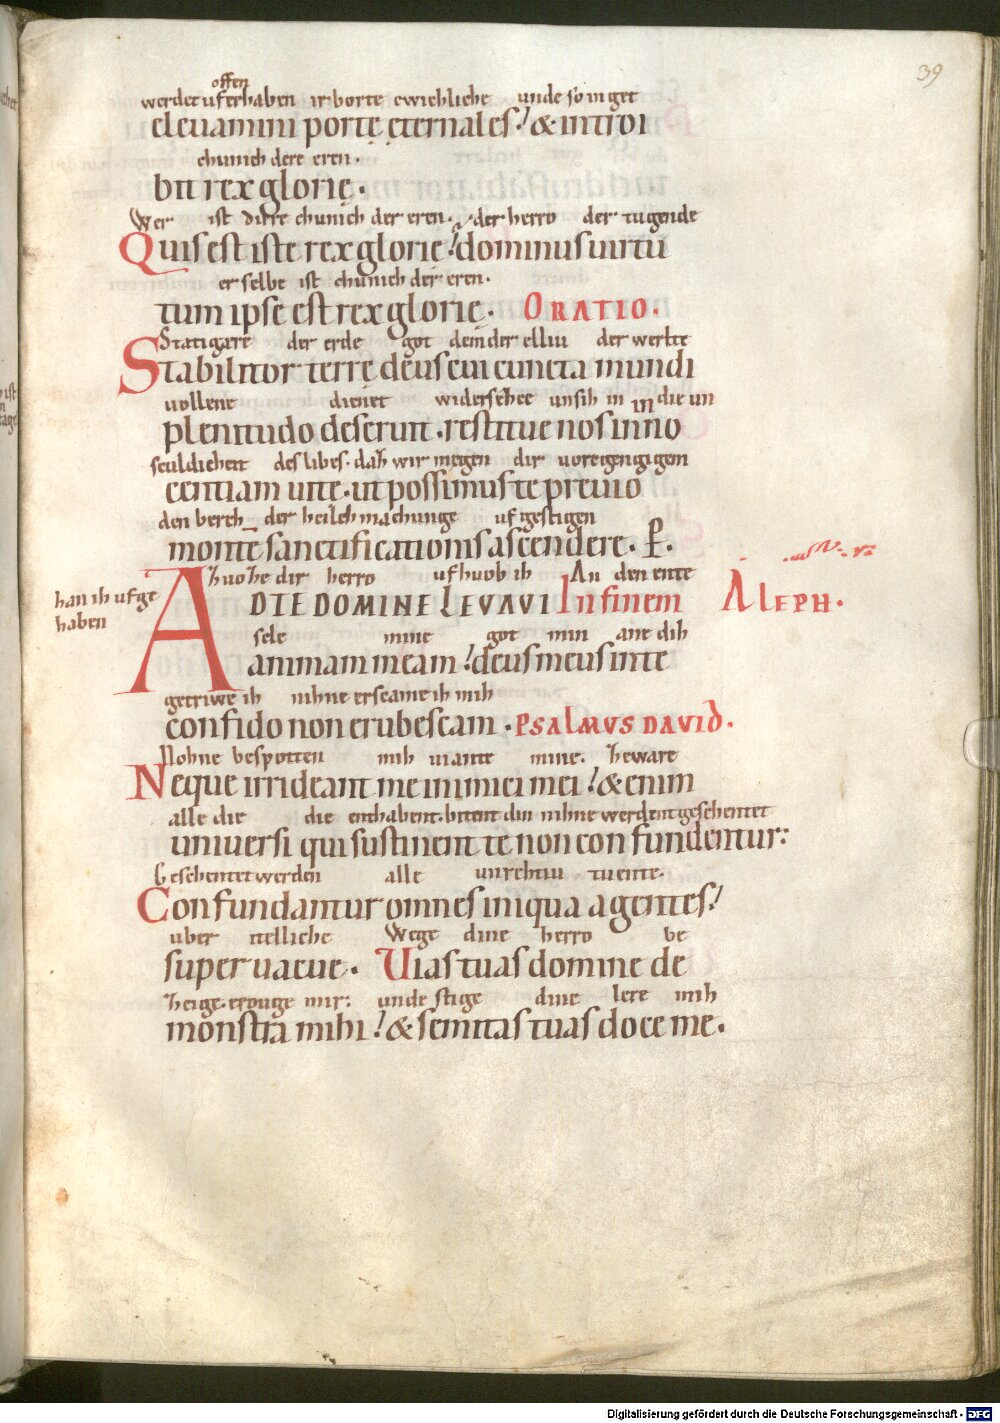 39
offen
werdet uf erhaben ir borte ewichliche unde so in get
elevamini portę ęternales! & introi
chunich dere eren.
bit rex glorię.
Wer ist dirre chunich der eren. der herro der tugende
Quis est iste rex glorie! dominus uirtu
er selbe ist chunich der eren.
tum ipse est rex glorię. ORATIO.
Statigare der erde got deinder elliu der werlte
Stabilitor terrę deus cui cuncta mundi
vollene dienet widersetzee unsih in in die un
plenitudo deseruit. restitue nos inno
sculdicheit des libes. daz wir megen dir voreigengigem
centiam uite. ut possimus te preuio
den berch der heilch machunge uf gestigen
montē sanctificationis ascendere. P.
han ih uf ge
haben
zuo ze dir herro ufhuob ih An den ente
AD TE DOMINE LEVAVI In finem ALEPH.
sele mine got min ane dih
animam meam! deus meus in te
getriwe ih nihne erscame ih mih
confido non erubescam. PSALMUS DAVID.
Nohne bespotten mih viante mine. zeware
Neque irrideant me inimici mei! & enim
alle die die enthabent. bitent din nihne werdent geschentet
uniuersi qui sustinent te non confundentur:
Geschentet werden alle unrehtiu tuente.
Confundantur omnes iniqua agentes!
uber itelliche Wege dine herro be
superuacue. Uias tuas domine de
zeige. erouge mir: unde stige dine lere mih
monstra mihi! & semitas tuas doce me.
Digitalisierung gefördert durch die Deutsche Forschungsgemeinschaft - DFG